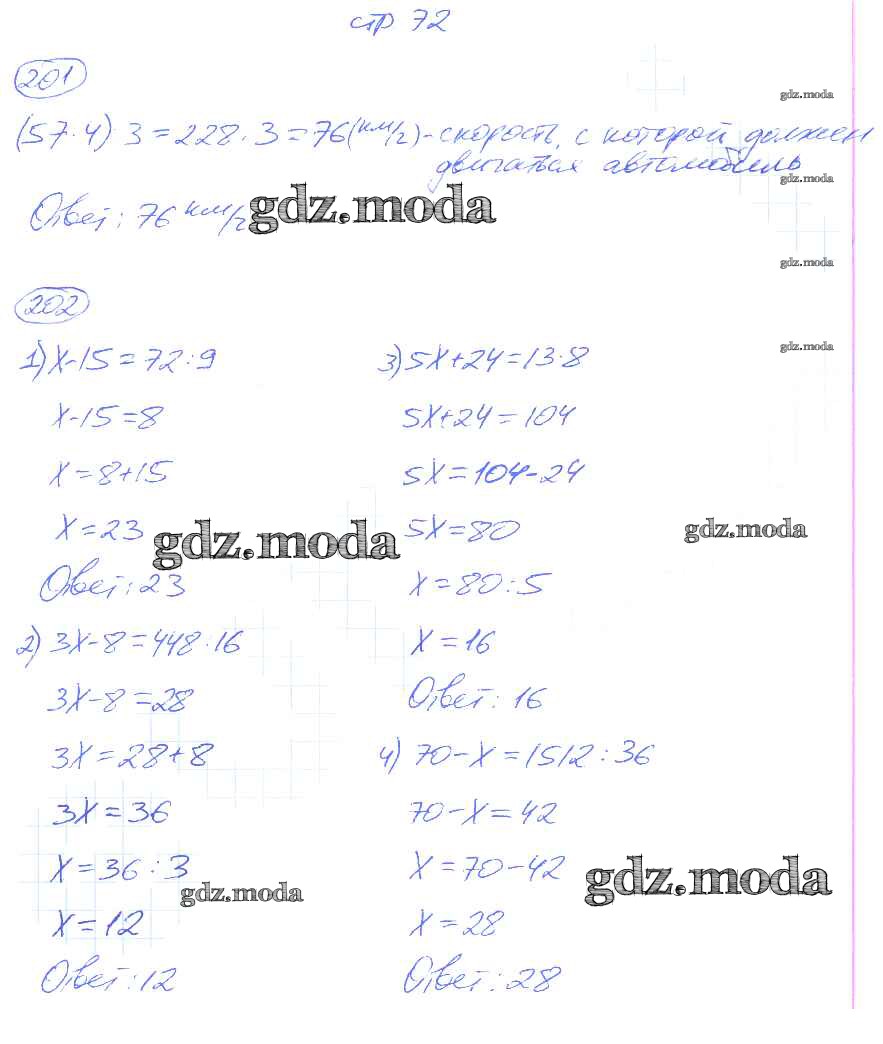 стр 72
201
(57·4)·3=228·3=76(км/г)-скорость, с которой должен
двигаться автомобиль
Ответ: 76 км/г
202
1) x-15=72:9
x-15=8
x=8+15
x=23
Ответ: 23
2) 3x-8=448·16
3x-8=28
3x=28+8
3x=36
x=36:3
x=12
Ответ: 12
3) 5x+24=13·8
5x+24=104
5x=104-24
5x=80
x=80:5
x=16
Ответ: 16
4) 70-x=1512:36
70-x=42
x=70-42
x=28
Ответ: 28
gdz.moda
gdz.moda
gdz.moda
gdz.moda
gdz.moda
gdz.moda
gdz.moda
gdz.moda
gdz.moda